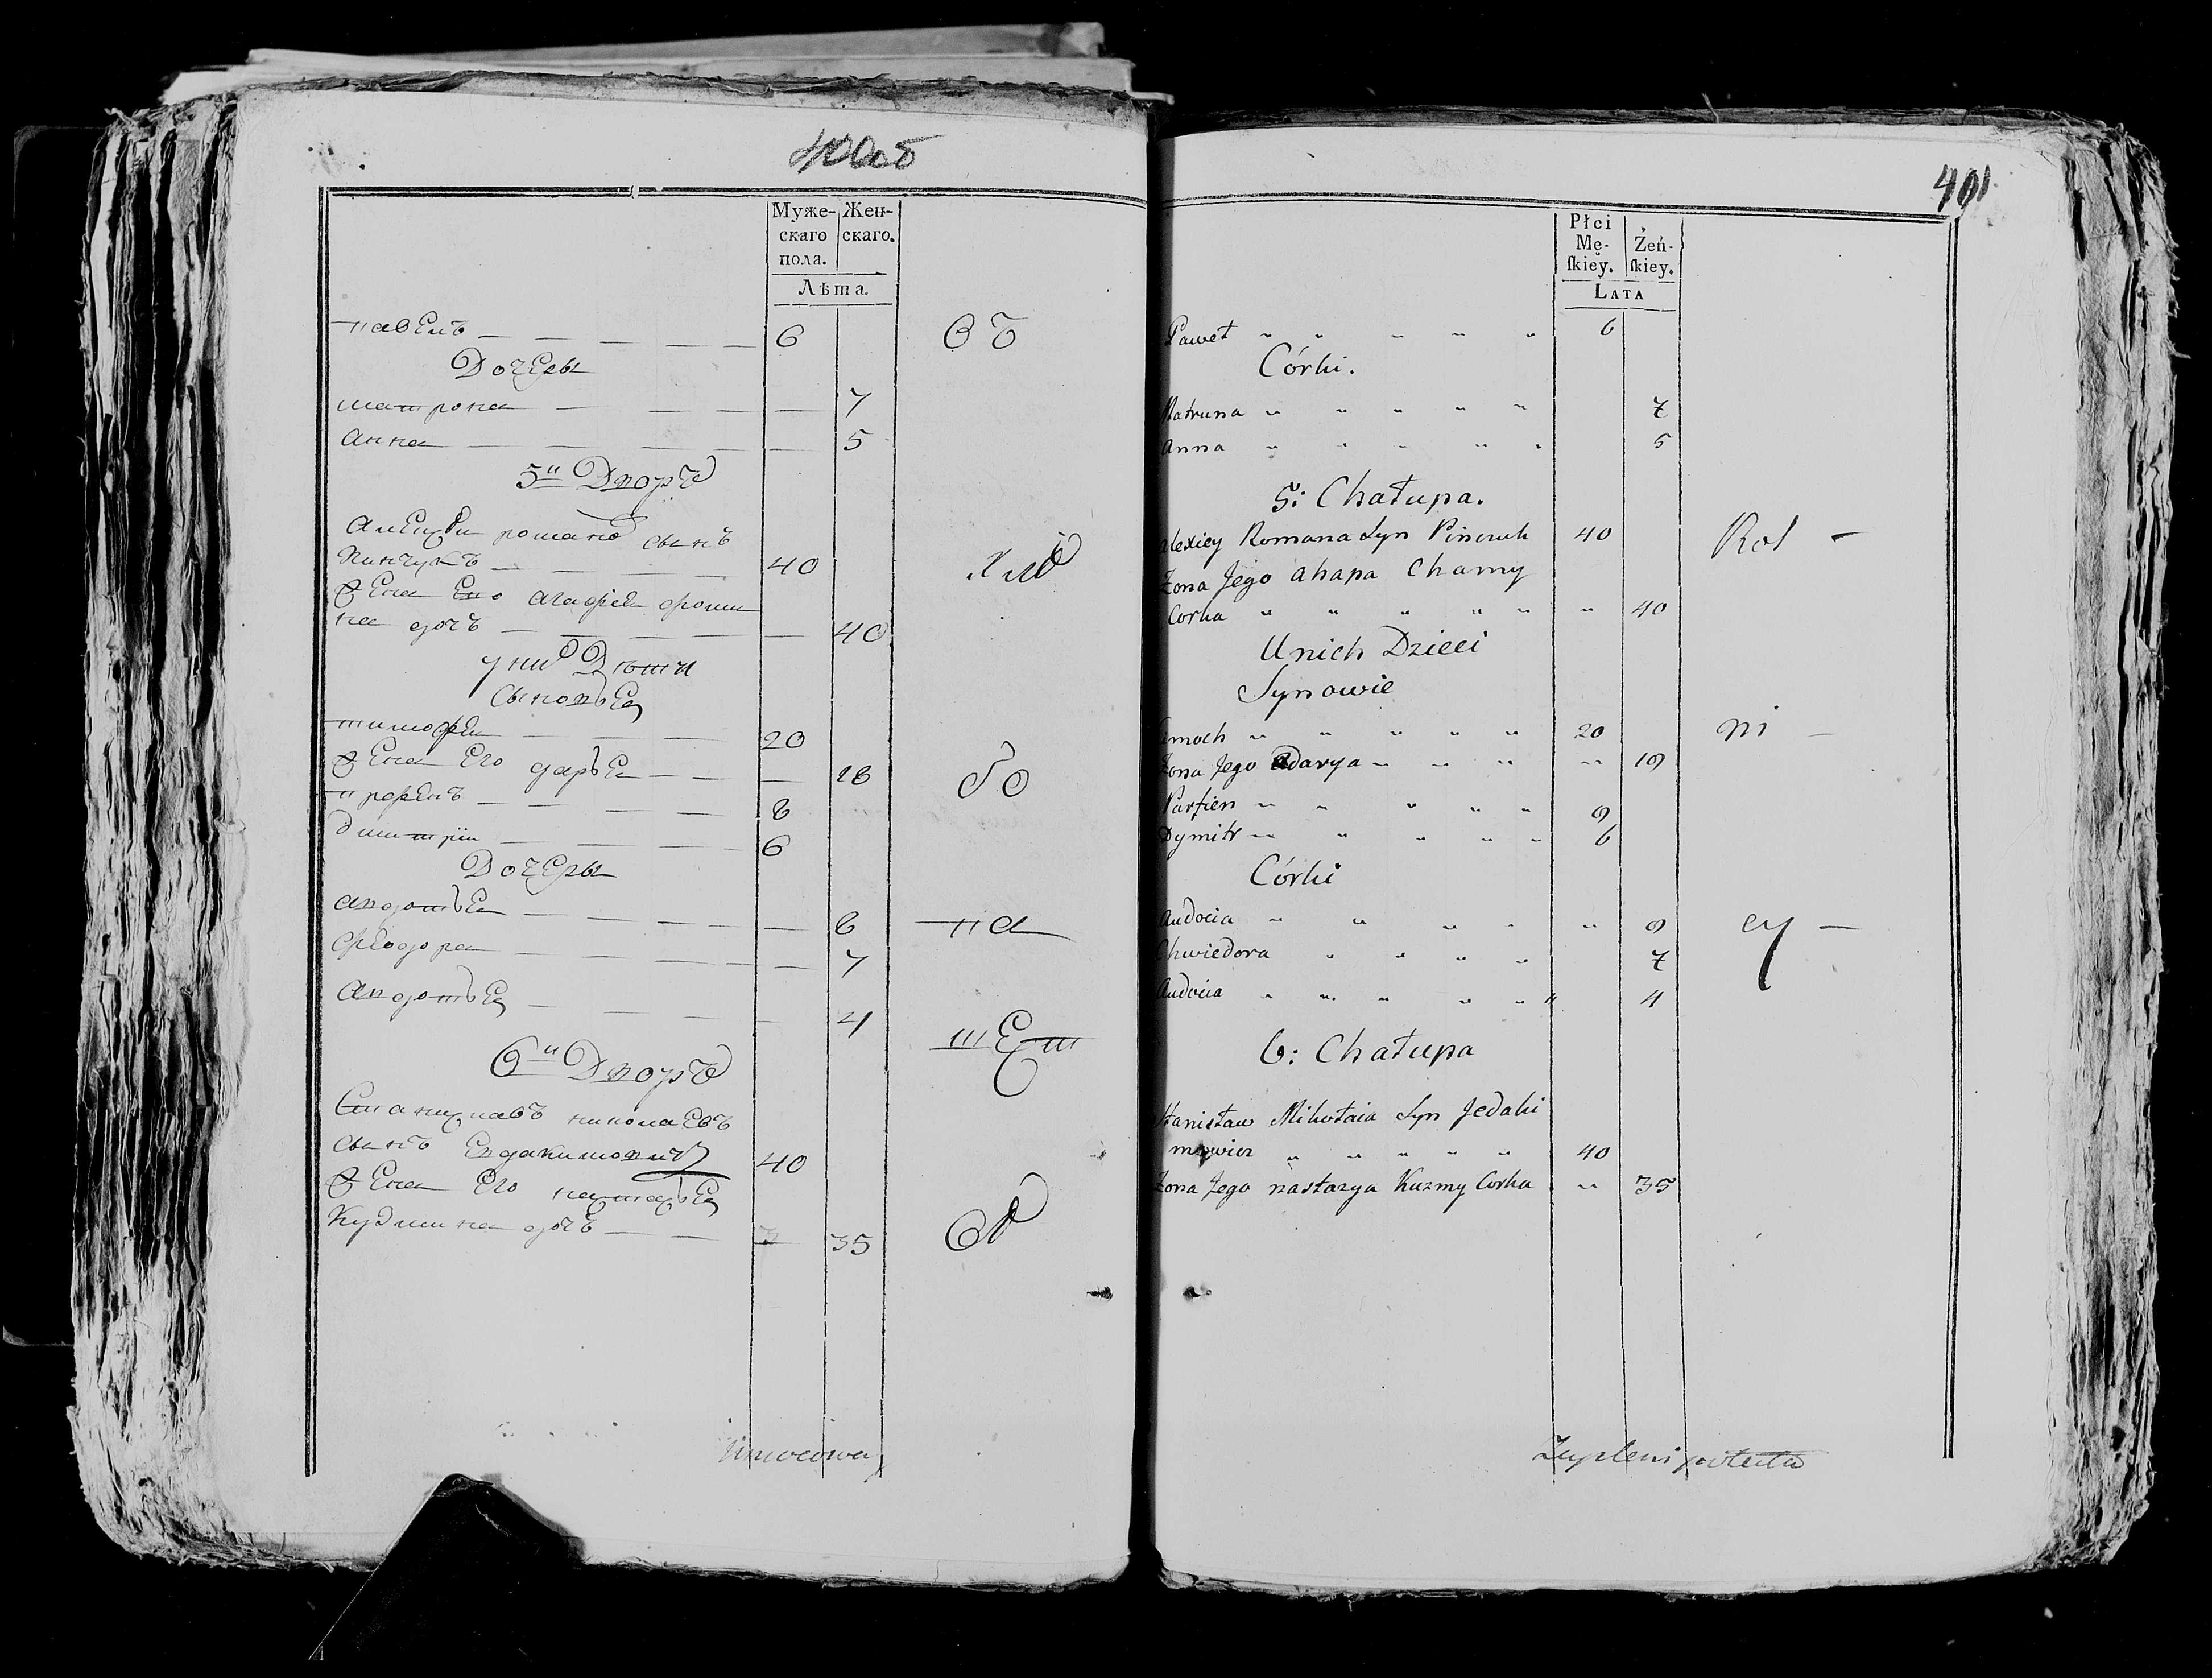 400об
Муже- Жен-
скаго скаго.
пола.
Лѣта.
павелъ 6
въ
Дочеры
матрона 7
анна 5
5й Дворъ
алексеи романо сынъ
Пинчукъ 40
хле
жена Его агафiя фоми
на дочь 40
у них Дѣти
сыновья
тимофеи 20
жена Его дарья 18
бо
прфенъ 8
димитрiи 6
Дочеры
авдотья 8
па
феодора 7
авдотья 4
шет
6й Дворъ
Станиславъ николаевъ
сынъ Евдакимович 40
жена Его настасья
Кудмина дочь 35
401
Płci
Mę- Żeń-
skiey. skiey.
LATA
Paweł " " " " " 6
Córki.
Matruna " " " " " 7
Anna " " " " " 5
5: Chałupa.
Alexiey Romana Syn Pinczuk 40
Rol -
Żona Jego ahapa Chamy
Corka " " " " " " 40
Unich Dzieci
Synowie
Cimoch " " " " " 20
ni -
Żona Jego Adarya " " " " 19
Parfien " " " " " 9
Dymitr " " " " " 6
Córki
Audocia " " " " " 9
cy -
Chwiedora " " " " 7
Audocia " " " " " " 4
6: Chałupa
Stanisław Mikołaia Syn Jedaki
mowicz " " " " " 40
Żona Jego nastazya Kuzmy Corka " 35